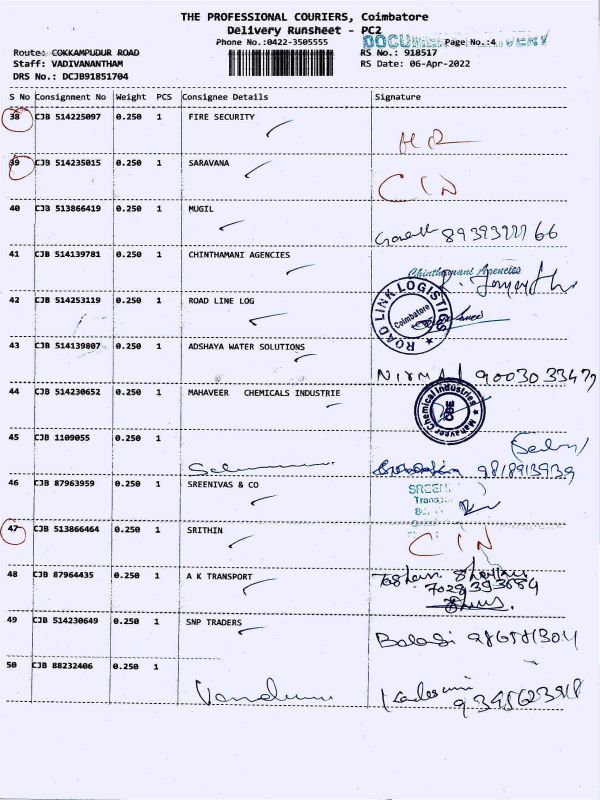 THE PROFESSIONAL COURIERS, Coimbatore
Delivery Runsheet - PC2
Phone No.:0422-3505555
Page No.:4
Route: COKKAMPUDUR ROAD
RS No.: 918517
Staff: VADIVANANTHAM
RS Date: 06-Apr-2022
DRS No.: DCJB91851704
S No Consignment No Weight PCS Consignee Details Signature
38 CJB 514225097 0.250 1 FIRE SECURITY
39 CJB 514235015 0.250 1 SARAVANA
CIN
40 CJB 513866419 0.250 1 MUGIL
41 CJB 514139781 0.250 1 CHINTHAMANI AGENCIES
Chinthamani Agencies
42 CJB 514253119 0.250 1 ROAD LINE LOG
ROAD LINK LOGISTICS
Coimbatore
43 CJB 514139807 0.250 1 ADSHAYA WATER SOLUTIONS
Nirmal
44 CJB 514230652 0.250 1 MAHAVEER CHEMICALS INDUSTRIE
Mahaveer Chemical Industries
CBE
45 CJB 1109055 0.250 1
9818913939
46 CJB 87963959 0.250 1 SREENIVAS & CO
47 CJB 513866464 0.250 1 SRITHIN
CIN
48 CJB 87964435 0.250 1 A K TRANSPORT
49 CJB 514230649 0.250 1 SNP TRADERS
Balaji
50 CJB 88232406 0.250 1
9345623918